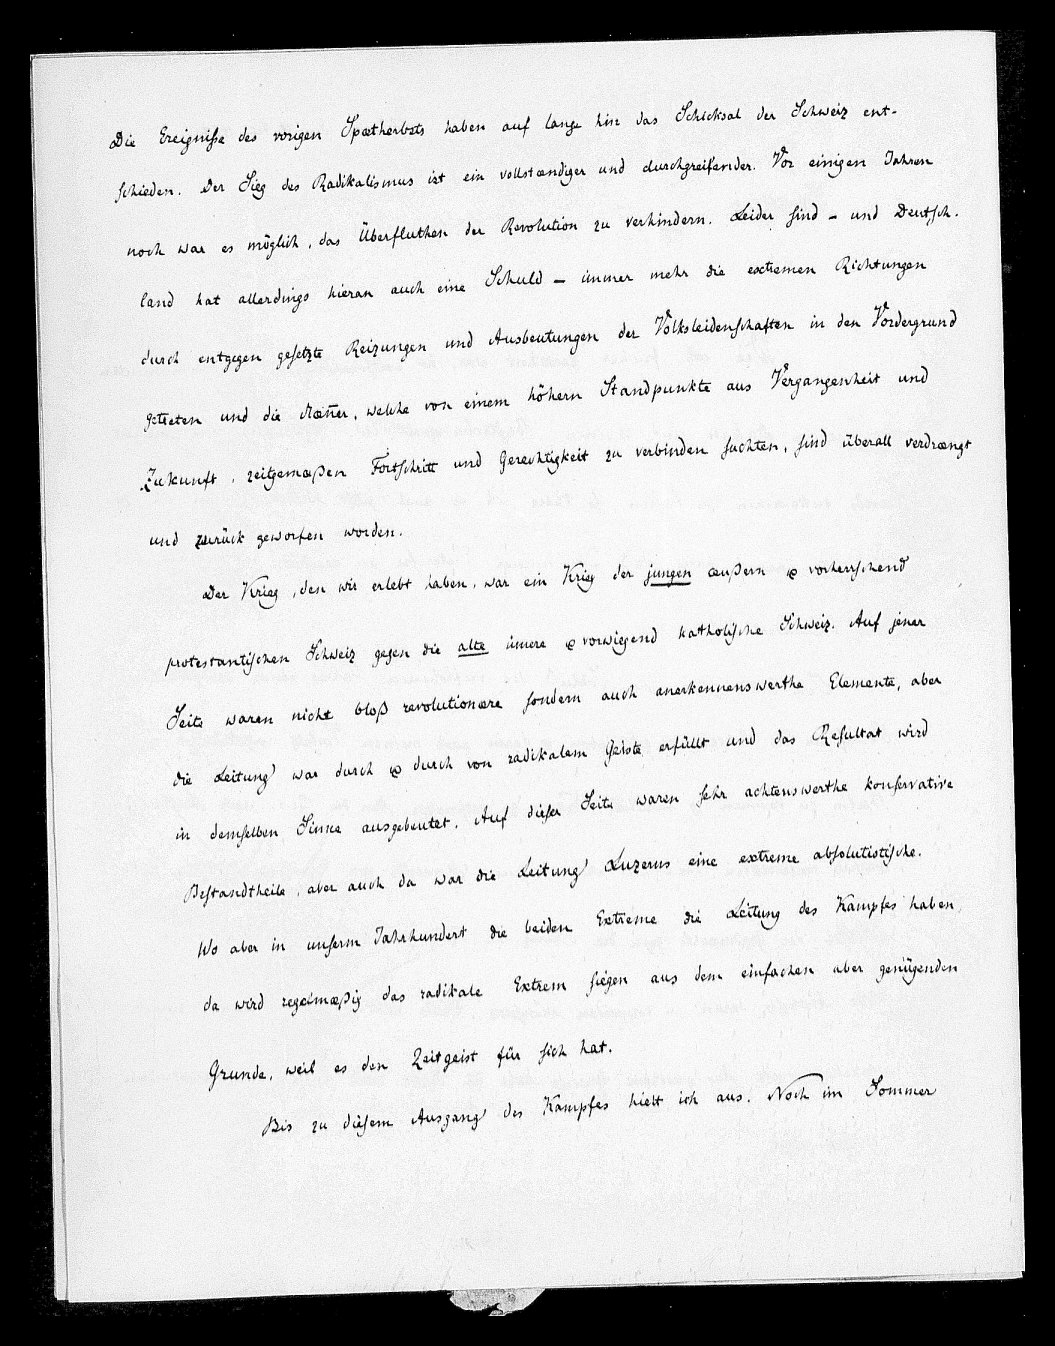 Die Ereigniße des vorigen Spætherbsts haben auf lange hin das Schicksal der Schweiz ent-
schieden. Der Sieg des Radikalismus ist ein vollstændiger und durchgreifender. Vor einigen Jahren
noch war es möglich, das Überfluthen der Revolution zu verhindern. Leider sind – und Deutsch-
land hat allerdings hieran auch eine Schuld – immer mehr die extremen Richtungen
durch entgegen gesetzte Reizungen und Ausbeutungen der Volksleidenschaften in den Vordergrund
getreten und die Mæñer, welche von einem höhern Standpunkte aus Vergangenheit und
Zukunft, zeitgemæßen Fortschritt und Gerechtigkeit zu verbinden suchten, sind überall verdrængt
und zurück geworfen worden.
Der Krieg, den wir erlebt haben, war ein Krieg der jungen æußern & vorherrschend
protestantischen Schweiz gegen die alte innere & vorwiegend katholische Schweiz. Auf jener
Seite waren nicht bloß revolutionære sondern auch anerkennenswerthe Elemente, aber
die Leitung war durch & durch von radikalem Geiste erfüllt und das Resultat wird
in demselben Sinne ausgebeutet. Auf dieser Seite waren sehr achtenswerthe konservative
Bestandtheile, aber auch da war die Leitung Luzerns eine extreme absolutistische.
Wo aber in unserm Jahrhundert die beiden Extreme die Leitung des Kampfes haben,
da wird regelmæßig das radikale Extrem siegen aus dem einfachen aber genügenden
Grunde, weil es den Zeitgeist für sich hat.
Bis zu diesem Ausgang des Kampfes hielt ich aus. Noch im Sommer